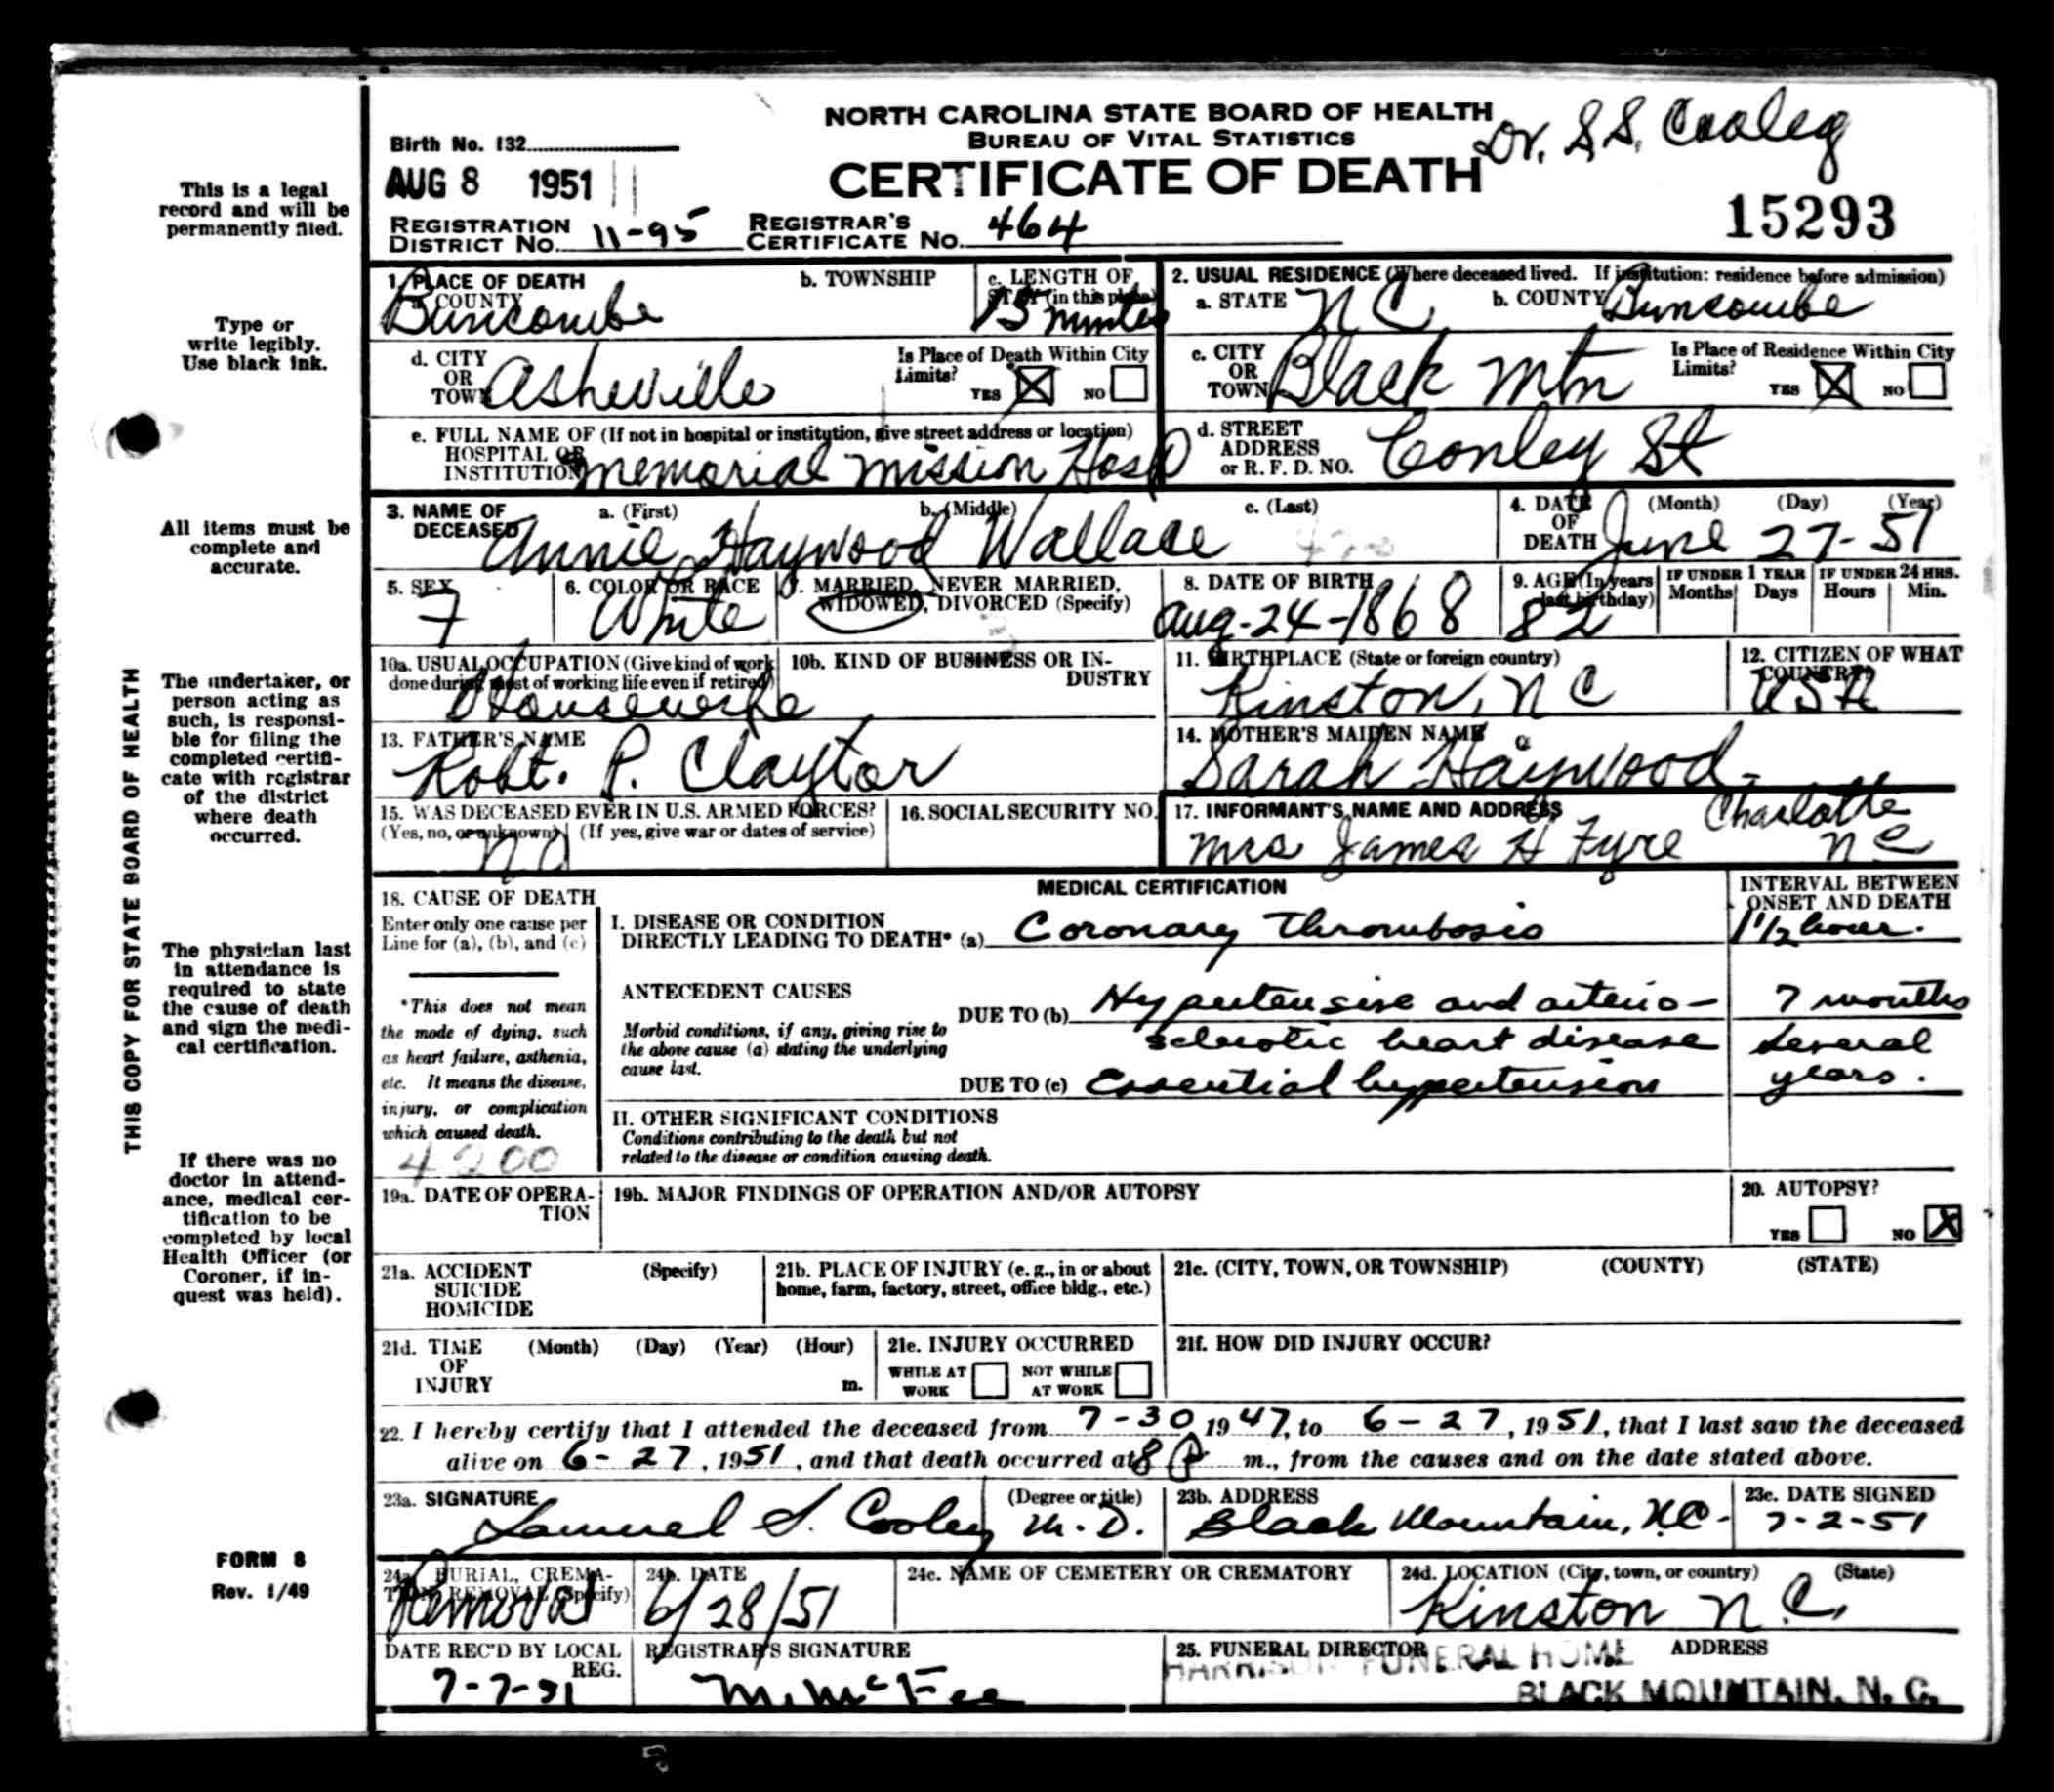 NORTH CAROLINA STATE BOARD OF HEALTH
BUREAU OF VITAL STATISTICS
CERTIFICATE OF DEATH
Dr. S.S. Cooley
15293
Birth No. 132
AUG 8 1951
REGISTRATION DISTRICT No. 11-95 REGISTRAR'S CERTIFICATE No. 464
This is a legal
record and will be
permanently filed.
Type or
write legibly.
Use black ink.
All items must be
complete and
accurate.
The undertaker, or
person acting as
such, is responsi-
ble for filing the
completed certifi-
cate with registrar
of the district
where death
occurred.
The physician last
in attendance is
required to state
the cause of death
and sign the medi-
cal certification.
If there was no
doctor in attend-
ance, medical cer-
tification to be
completed by local
Health Officer (or
Coroner, if in-
quest was held).
FORM 8
Rev. 1/49
THIS COPY FOR STATE BOARD OF HEALTH
1. PLACE OF DEATH
a. COUNTY Buncombe
b. TOWNSHIP
c. LENGTH OF STAY (in this place) 15 minutes
d. CITY OR TOWN Asheville
Is Place of Death Within City Limits? YES X NO
e. FULL NAME OF (If not in hospital or institution, give street address or location)
HOSPITAL OR INSTITUTION Memorial Mission Hosp
2. USUAL RESIDENCE (Where deceased lived. If institution: residence before admission)
a. STATE N C b. COUNTY Buncombe
c. CITY OR TOWN Black Mtn
Is Place of Residence Within City Limits? YES X NO
d. STREET ADDRESS or R. F. D. NO. Conley St
3. NAME OF DECEASED a. (First) b. (Middle) c. (Last)
Annie Haywood Wallace
4. DATE OF DEATH (Month) (Day) (Year)
June 27-51
5. SEX F
6. COLOR OR RACE White
7. MARRIED, NEVER MARRIED, WIDOWED, DIVORCED (Specify)
8. DATE OF BIRTH Aug-24-1868
9. AGE (In years last birthday) 82
IF UNDER 1 YEAR Months Days
IF UNDER 24 HRS. Hours Min.
10a. USUAL OCCUPATION (Give kind of work done during most of working life even if retired)
Housewife
10b. KIND OF BUSINESS OR INDUSTRY
11. BIRTHPLACE (State or foreign country)
Kinston, N C
12. CITIZEN OF WHAT COUNTRY?
USA
13. FATHER'S NAME
Robt. P. Claytor
14. MOTHER'S MAIDEN NAME
Sarah Haywood
15. WAS DECEASED EVER IN U.S. ARMED FORCES?
(Yes, no, or unknown) (If yes, give war or dates of service)
no
16. SOCIAL SECURITY NO.
17. INFORMANT'S NAME AND ADDRESS
Mrs James H Fyre Charlotte N C
MEDICAL CERTIFICATION
18. CAUSE OF DEATH
Enter only one cause per
Line for (a), (b), and (c)
*This does not mean
the mode of dying, such
as heart failure, asthenia,
etc. It means the disease,
injury, or complication
which caused death.
4200
INTERVAL BETWEEN ONSET AND DEATH
I. DISEASE OR CONDITION
DIRECTLY LEADING TO DEATH* (a) Coronary Thrombosis 1 1/2 hour.
ANTECEDENT CAUSES
Morbid conditions, if any, giving rise to
the above cause (a) stating the underlying
cause last.
DUE TO (b) Hypertensive and arterio- 7 months
sclerotic heart disease several
DUE TO (c) Essential hypertension years.
II. OTHER SIGNIFICANT CONDITIONS
Conditions contributing to the death but not
related to the disease or condition causing death.
19a. DATE OF OPERATION
19b. MAJOR FINDINGS OF OPERATION AND/OR AUTOPSY
20. AUTOPSY?
YES NO X
21a. ACCIDENT SUICIDE HOMICIDE (Specify)
21b. PLACE OF INJURY (e. g., in or about
home, farm, factory, street, office bldg., etc.)
21c. (CITY, TOWN, OR TOWNSHIP) (COUNTY) (STATE)
21d. TIME OF INJURY (Month) (Day) (Year) (Hour) m.
21e. INJURY OCCURRED
WHILE AT WORK NOT WHILE AT WORK
21f. HOW DID INJURY OCCUR?
22. I hereby certify that I attended the deceased from 7-30, 1947, to 6-27, 1951, that I last saw the deceased
alive on 6-27, 1951, and that death occurred at 8 P m., from the causes and on the date stated above.
23a. SIGNATURE (Degree or title)
Samuel S. Cooley M.D.
23b. ADDRESS
Black Mountain, N.C.
23c. DATE SIGNED
7-2-51
24a. BURIAL, CREMATION, REMOVAL (Specify)
Removal
24b. DATE
6/28/51
24c. NAME OF CEMETERY OR CREMATORY
24d. LOCATION (City, town, or country) (State)
Kinston N.C.
DATE REC'D BY LOCAL REG.
7-7-51
REGISTRAR'S SIGNATURE
M. McFee
25. FUNERAL DIRECTOR ADDRESS
HARRISON FUNERAL HOME
BLACK MOUNTAIN, N. C.